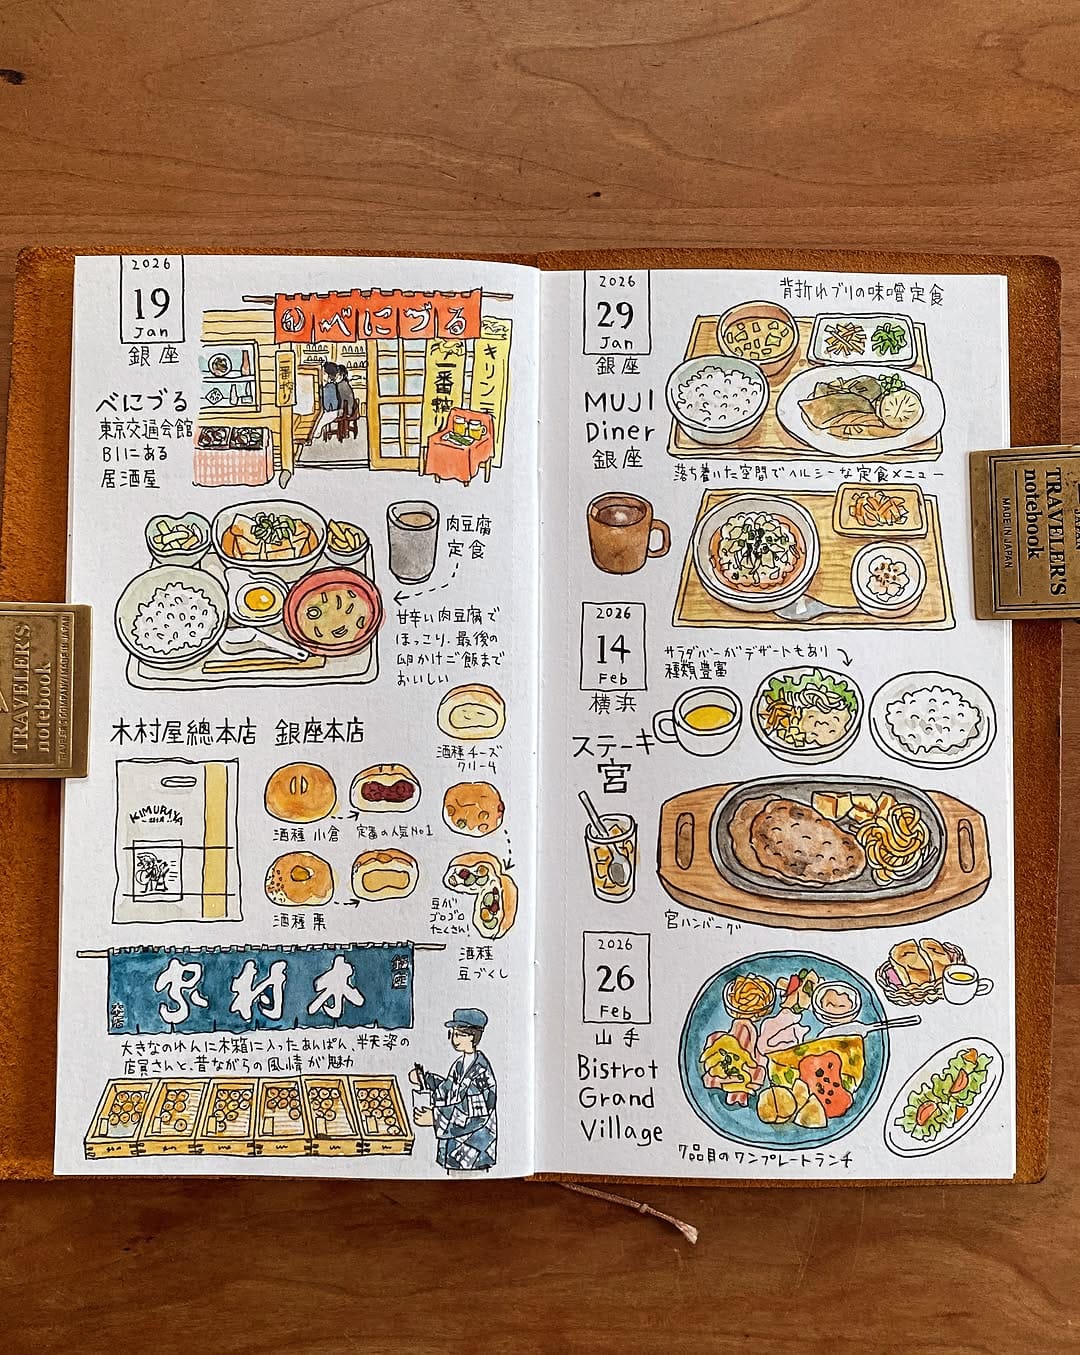 2026
19
Jan
銀座
べにづる
東京交通会館
B1にある
居酒屋
べにづる
一番搾り
一番搾り
キリン一
肉豆腐
定食
甘辛い肉豆腐で
ほっこり、最後の
卵かけご飯まで
おいしい
木村屋總本店 銀座本店
KIMURAYA
酒種 チーズ
クリーム
酒種 小倉
定番の人気No1
酒種 栗
豆が
ゴロゴロ
たくさん!
酒種
豆づくし
銀座
木村家
大きなのれんに木箱に入ったあんぱん、半天姿の
店員さんと、昔ながらの風情が魅力
2026
29
Jan
銀座
MUJI
Diner
銀座
背折れブリの味噌定食
落ち着いた空間でヘルシーな定食メニュー
2026
14
Feb
横浜
ステーキ
宮
サラダバーがデザートもあり
種類豊富
宮ハンバーグ
2026
26
Feb
山手
Bistrot
Grand
Village
7品目のワンプレートランチ
TRAVELER'S
notebook
TRAVELER'S COMPANY MADE IN JAPAN
JAPAN
TRAVELER'S
notebook
MADE IN JAPAN